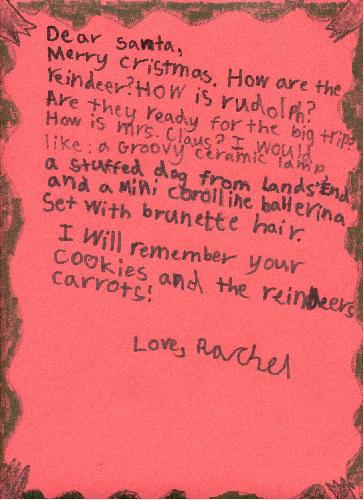 Dear Santa,
Merry Cristmas. How are the
reindeer? How is rudolph?
Are they ready for the big trip?
How is mrs. Claus? I would
like: a Groovy ceramic lamp,
a stuffed dog from Lands'End,
and a Mini Corolline ballerina
Set with brunette hair.
I Will remember your
cookies and the reindeers
carrots!
Love, Rachel